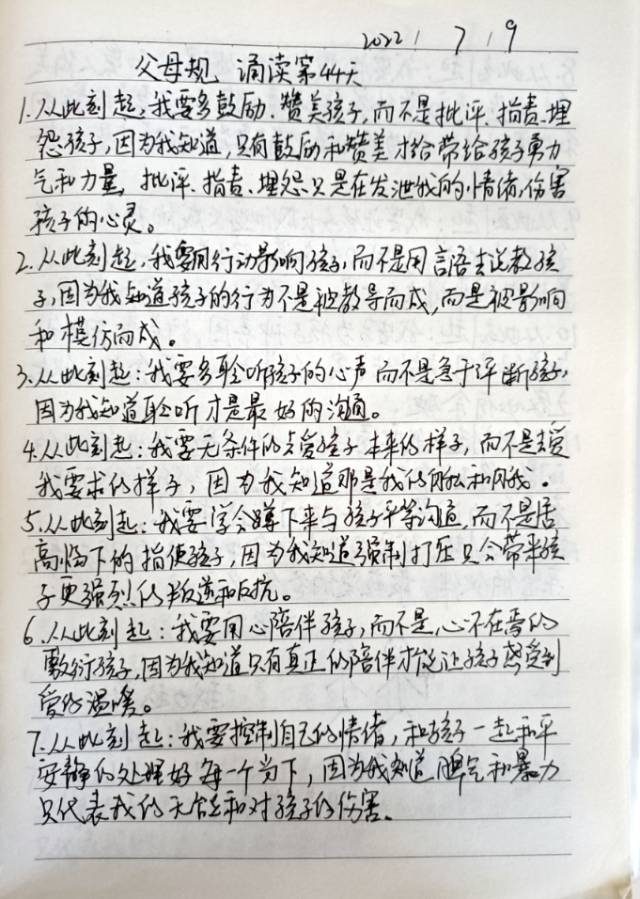 2022 7 19
父母规 诵读第44天
1.从此刻起,我要多鼓励、赞美孩子,而不是批评、指责、埋
怨孩子,因为我知道,只有鼓励和赞美才给带给孩子勇力
气和力量,批评、指责、埋怨只是在发泄我的情绪,伤害
孩子的心灵。
2.从此刻起,我要用行动影响孩子,而不是用言语去说教孩
子,因为我知道孩子的行为不是被教导而成,而是被影响
和模仿而成。
3.从此刻起:我要多聆听孩子的心声而不是急于评断孩子,
因为我知道聆听才是最好的沟通。
4.从此刻起:我要无条件的去爱孩子本来的样子,而不是去爱
我要求的样子,因为我知道那是我的自私和自我。
5.从此刻起:我要学会蹲下来与孩子平等沟通,而不是居
高临下的指使孩子,因为我知道强制打压只会带来孩
子更强烈的叛逆和反抗。
6.从此刻起:我要用心陪伴孩子,而不是心不在焉的
敷衍孩子,因为我知道只有真正的陪伴才能让孩子感受到
爱的温暖。
7.从此刻起:我要控制自己的情绪,和孩子一起和平
安静的处理好每一个当下,因为我知道脾气和暴力
只代表我的无能和对孩子的伤害。